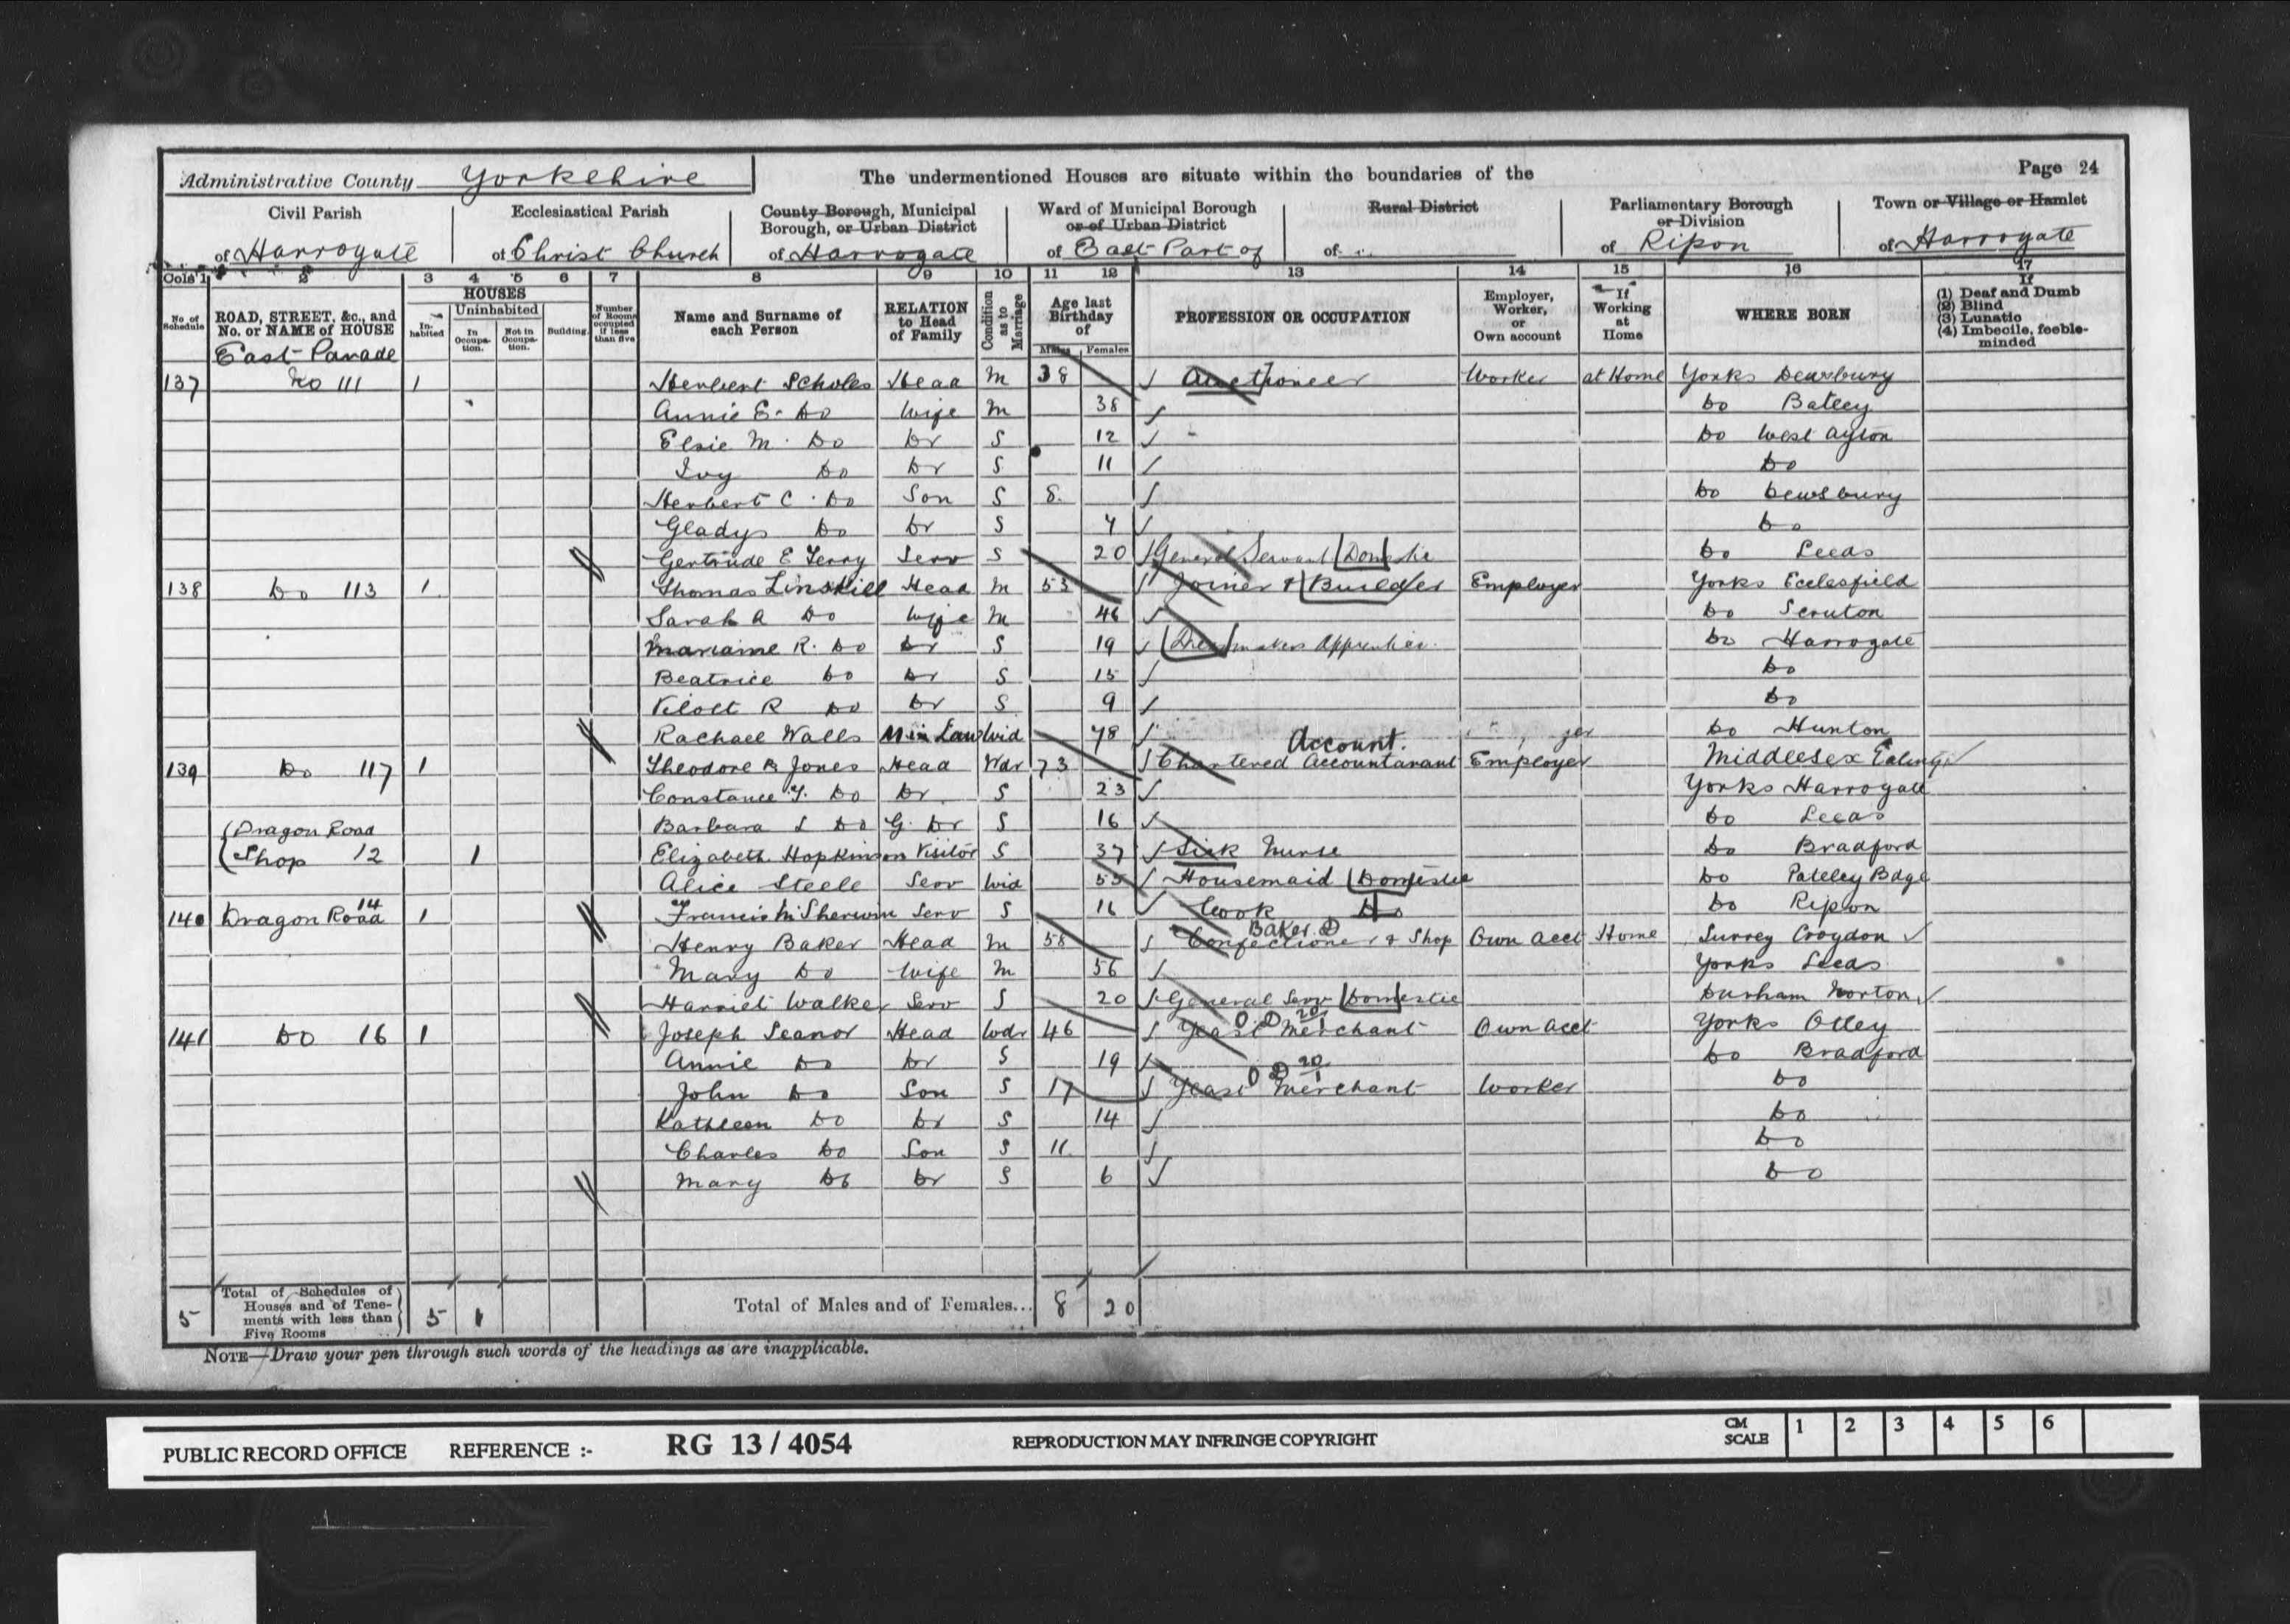 Administrative County Yorkshire The undermentioned Houses are situate within the boundaries of the Page 24
Civil Parish Ecclesiastical Parish County Borough, Municipal Borough, or Urban District Ward of Municipal Borough or of Urban District Rural District Parliamentary Borough or Division Town or Village or Hamlet
of Harrogate of Christ Church of Harrogate of East Part of of of Ripon of Harrogate
Cols 1 2 3 4 5 6 7 8 9 10 11 12 13 14 15 16 17
No. of Schedule ROAD, STREET, &c., and No. or NAME of HOUSE HOUSES In-habited Uninhabited In Occupa-tion. Not in Occupa-tion. Building. Number of Rooms occupied if less than five Name and Surname of each Person RELATION to Head of Family Condition as to Marriage Age last Birthday of Males Females PROFESSION OR OCCUPATION Employer, Worker, or Own account If Working at Home WHERE BORN If (1) Deaf and Dumb (2) Blind (3) Lunatic (4) Imbecile, feeble-minded
East Parade
137 No 111 1 Herbert Scholes Head M 38 Auctioneer Worker at Home Yorks Dewsbury
Annie E. Do Wife M 38 Do Batley
Elsie M. Do Dr S 12 Do West Ayton
Ivy Do Dr S 11 Do
Herbert C. Do Son S 8 Do Dewsbury
Gladys Do Dr S 4 Do
Gertrude E Terry Serv S 20 General Servant Domestic Do Leeds
138 Do 113 1 Thomas Linskill Head M 53 Joiner & Builder Employer Yorks Ecclesfield
Sarah A Do Wife M 46 Do Scruton
Mariame R. Do Dr S 19 Dressmakers Apprentice Do Harrogate
Beatrice Do Dr S 15 Do
Violet R Do Dr S 9 Do
Rachael Walls M in Law Wid 78 Do Hunton
Account.
139 Do 117 1 Theodore B Jones Head Wdr 73 Chartered Accountanant Employer Middlesex Ealing
Constance Y. Do Dr S 23 Yorks Harrogate
Dragon Road Barbara L Do G. Dr S 16 Do Leeds
Shop 12 1 Elizabeth Hopkinson Visitor S 37 Sick Nurse Do Bradford
Alice Steele Serv Wid 55 Housemaid Domestic Do Pateley Bdge
140 Dragon Road 14 1 Francis M Sherwin Serv S 16 Cook Do Do Ripon
Baker
Henry Baker Head M 58 Confectioner & Shop Own acct Home Surrey Croydon
Mary Do Wife M 56 Yorks Leeds
Harriet Walker Serv S 20 General Serv Domestic Durham Norton
141 Do 16 1 Joseph Seanor Head Wdr 46 Yeast Merchant Own acct Yorks Otley
Annie Do Dr S 19 Do Bradford
John Do Son S 17 Yeast Merchant Worker Do
Kathleen Do Dr S 14 Do
Charles Do Son S 11 Do
Mary Do Dr S 6 Do
5 Total of Schedules of Houses and of Tene-ments with less than Five Rooms 5 1 Total of Males and of Females... 8 20
NOTE—Draw your pen through such words of the headings as are inapplicable.
PUBLIC RECORD OFFICE REFERENCE :- RG 13 / 4054 REPRODUCTION MAY INFRINGE COPYRIGHT CM SCALE 1 2 3 4 5 6